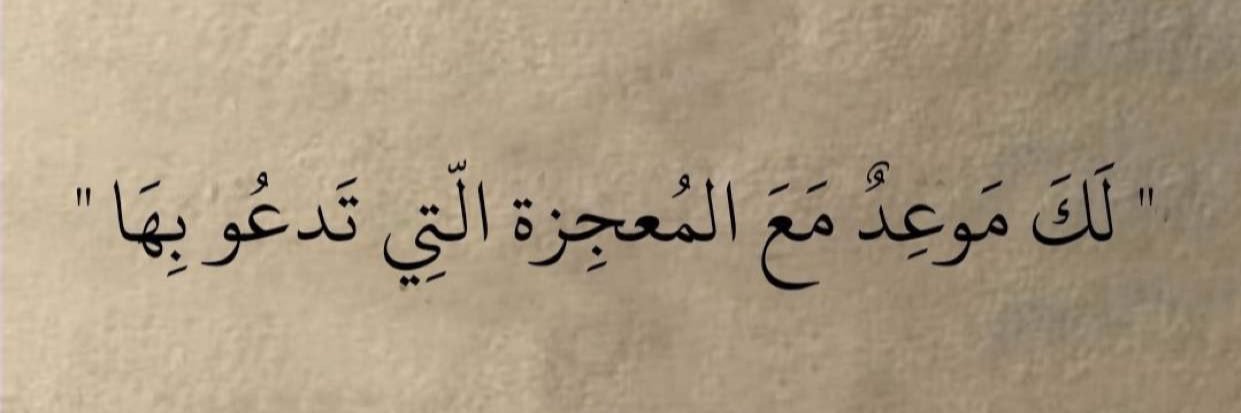 " لَكَ مَوعِدٌ مَعَ المُعجِزة الّتِي تَدعُو بِهَا "